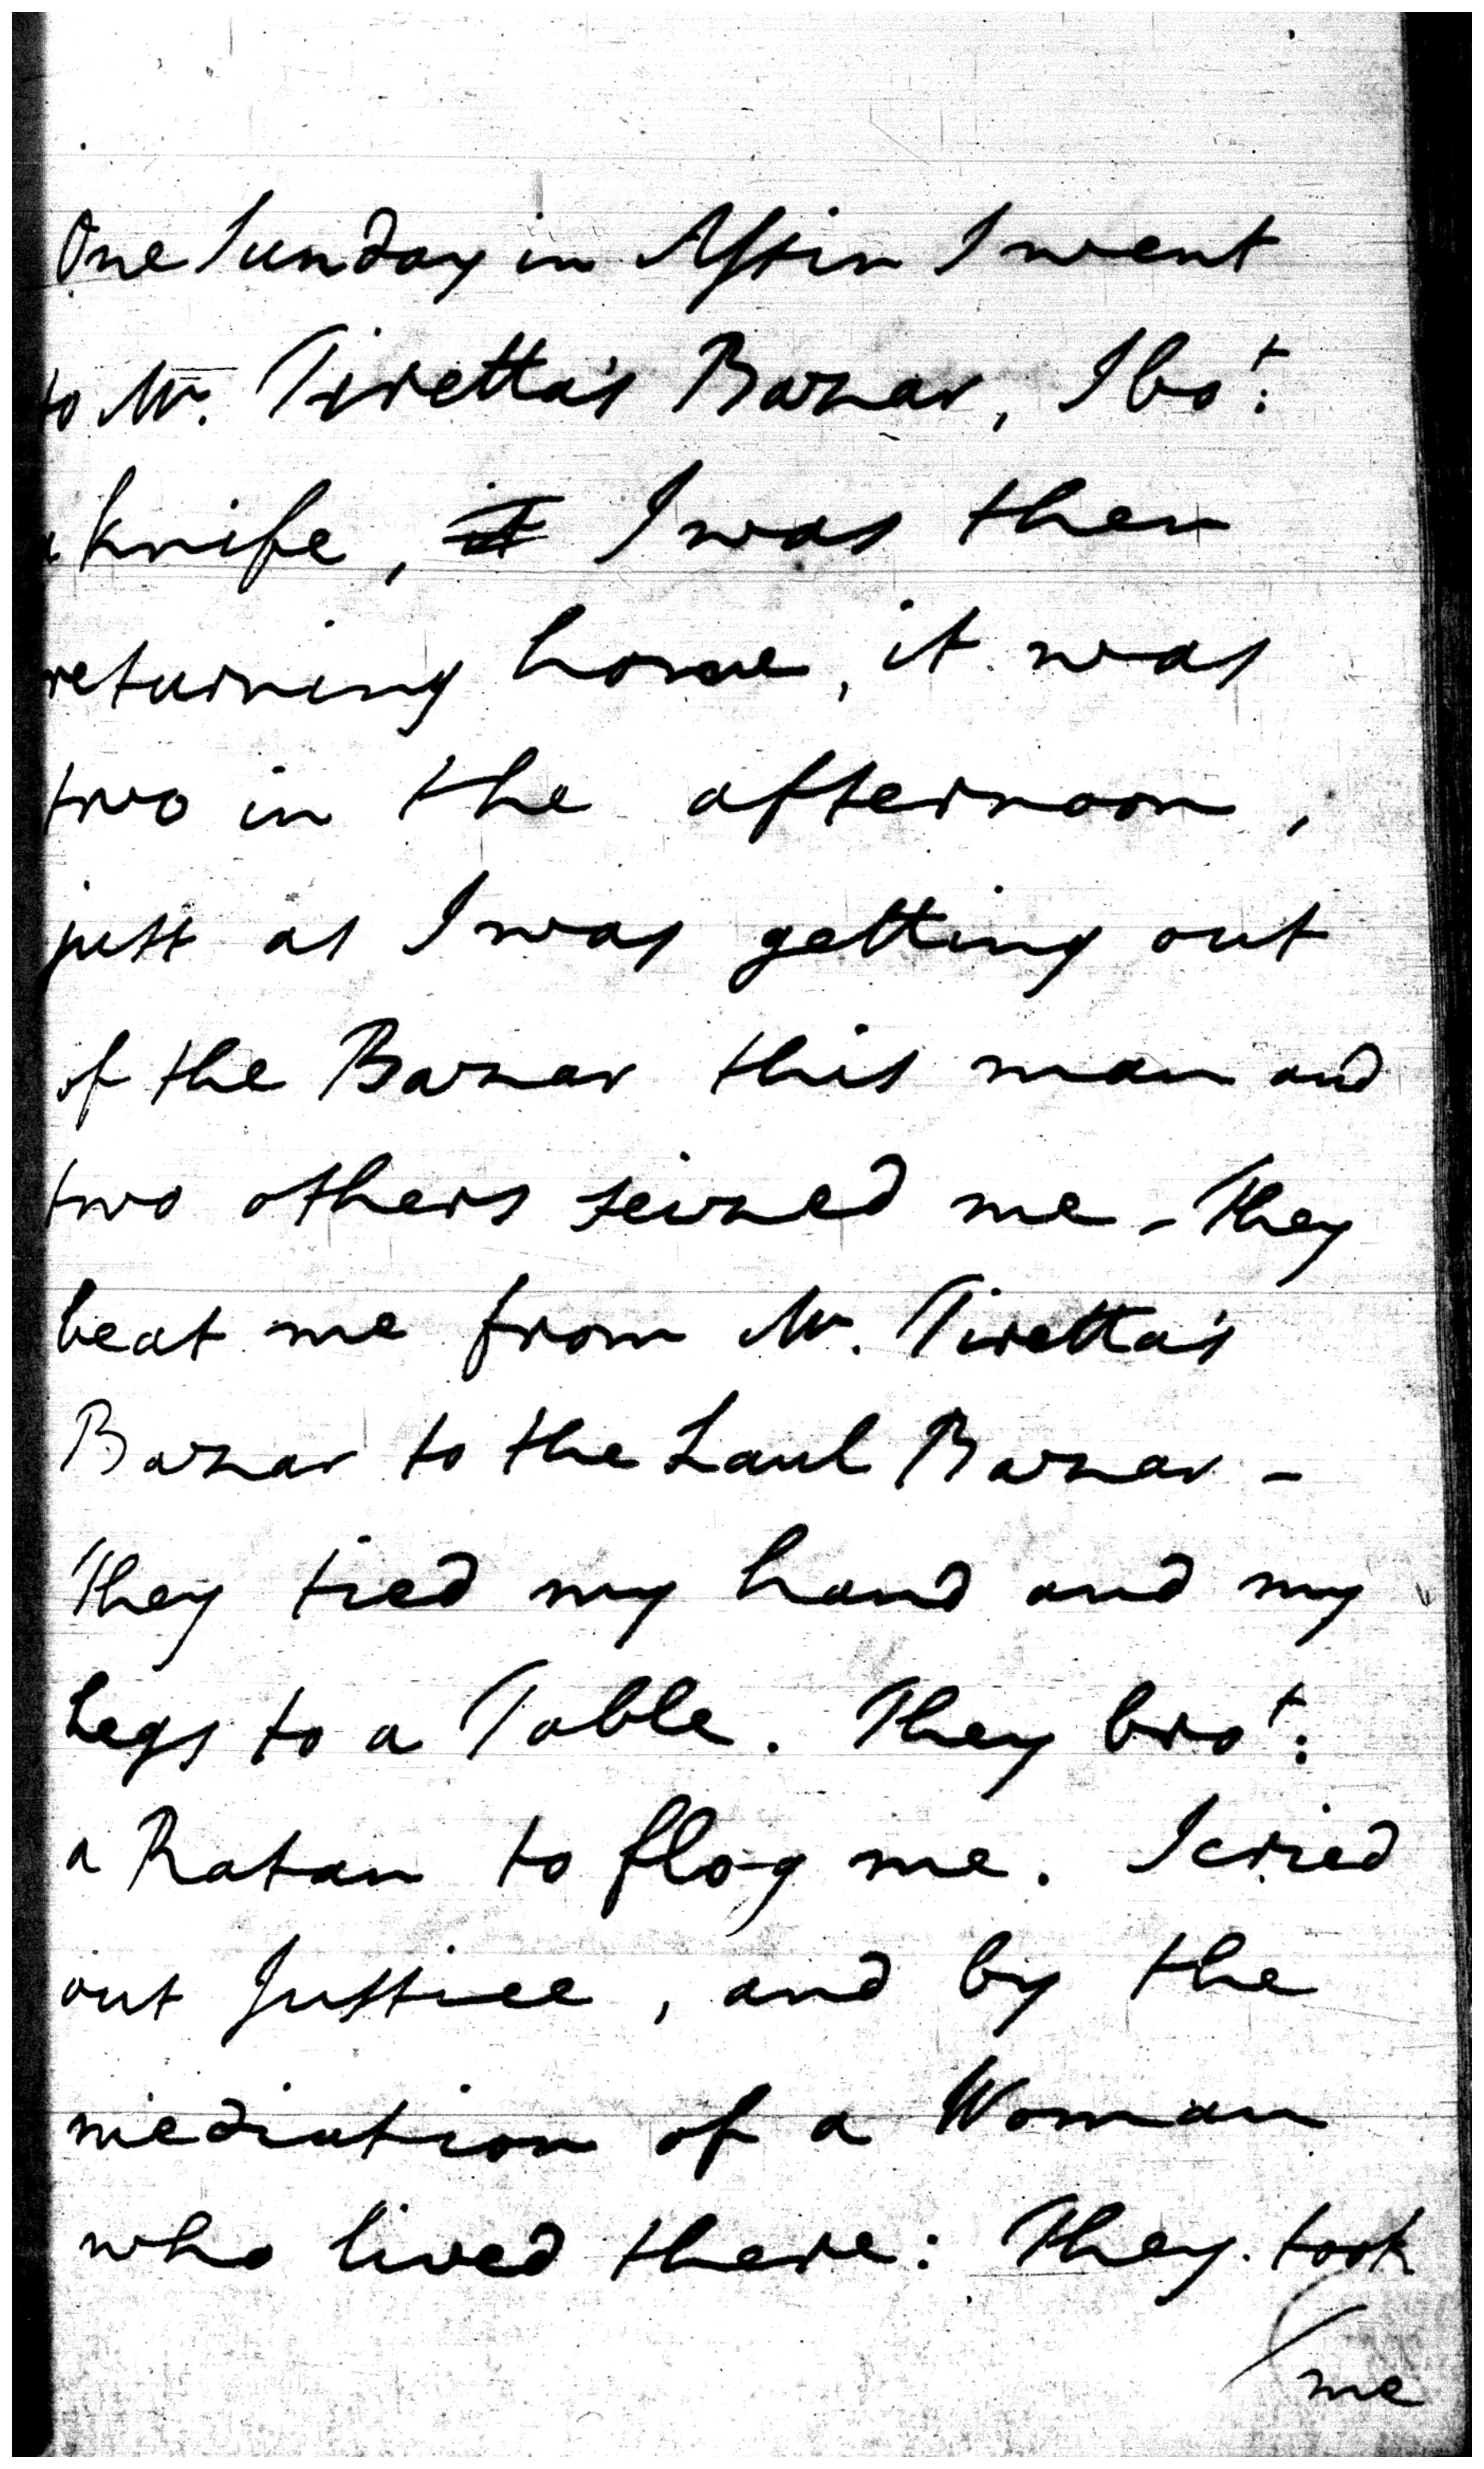 One Sunday in Assin I went
to Mr. Tiretta's Bazar, I bo^t:
a knife, it I was then
returning home, it was
two in the afternoon,
just as I was getting out
of the Bazar this man and
two others seized me - They
beat me from Mr. Tiretta's
Bazar to the Laul Bazar -
They tied my hand and my
Legs to a Table. They bro^t:
a Ratan to flog me. I cried
out Justice, and by the
mediation of a Woman
who lived there: They took
me